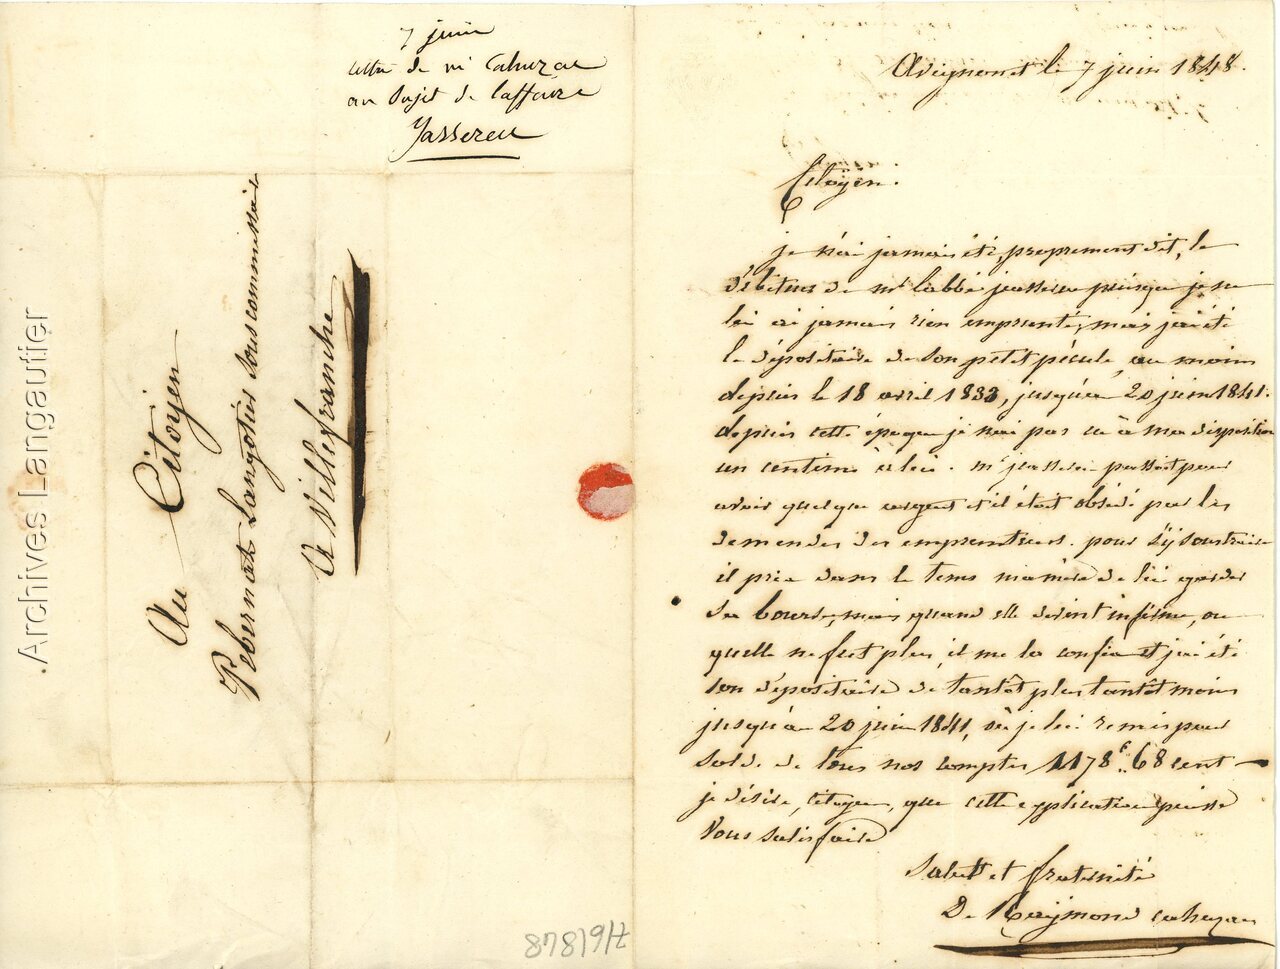 7 juin
lettre de mr Cahuzac
au sujet de l'affaire
Jassereu
Au Citoyen
Pebernat Langotier sous commissaire
a Villefranche
Avignonet le 7 juin 1848.
Citoÿen.
je n'ai jamais été, proprement dit, le
débiteur de mr l'abbé jasserau puisque je ne
lui ai jamais rien emprunté, mais j'ai été
le dépositaire de son petit pécule, au moins
depuis le 18 avril 1833, jusqu'au 20 juin 1841.
depuis cette époque je n'ai pas eu à ma disposition
un centime à lui. mr jasserau passait pour
avoir quelque argent et il était obsédé par les
demandes des emprunteurs. pour s'ÿ soustraire
il pria dans le tems ma mère de lui garder
sa bourse, mais quand elle devint infirme, ou
qu'elle ne fut plus, il me la confia et j'ai été
son dépositaire de tantôt plus tantôt moins
jusqu'au 20 juin 1841, où je lui remis pour
solde de tous nos comptes 1178 f. 68 cent
je désire, citoyen, que cette explication puisse
vous satisfaire
Salut et fraternité
De Raÿmond cahuzac
87819/7
.Archives Langautier